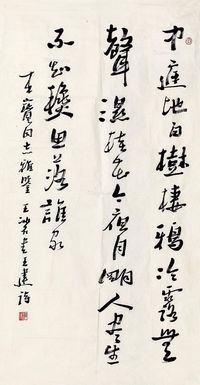 中庭地白樹棲鴉冷露無
聲濕桂花今夜月明人盡望
不知龝思落誰家
寶同志雅鑒 王建詩